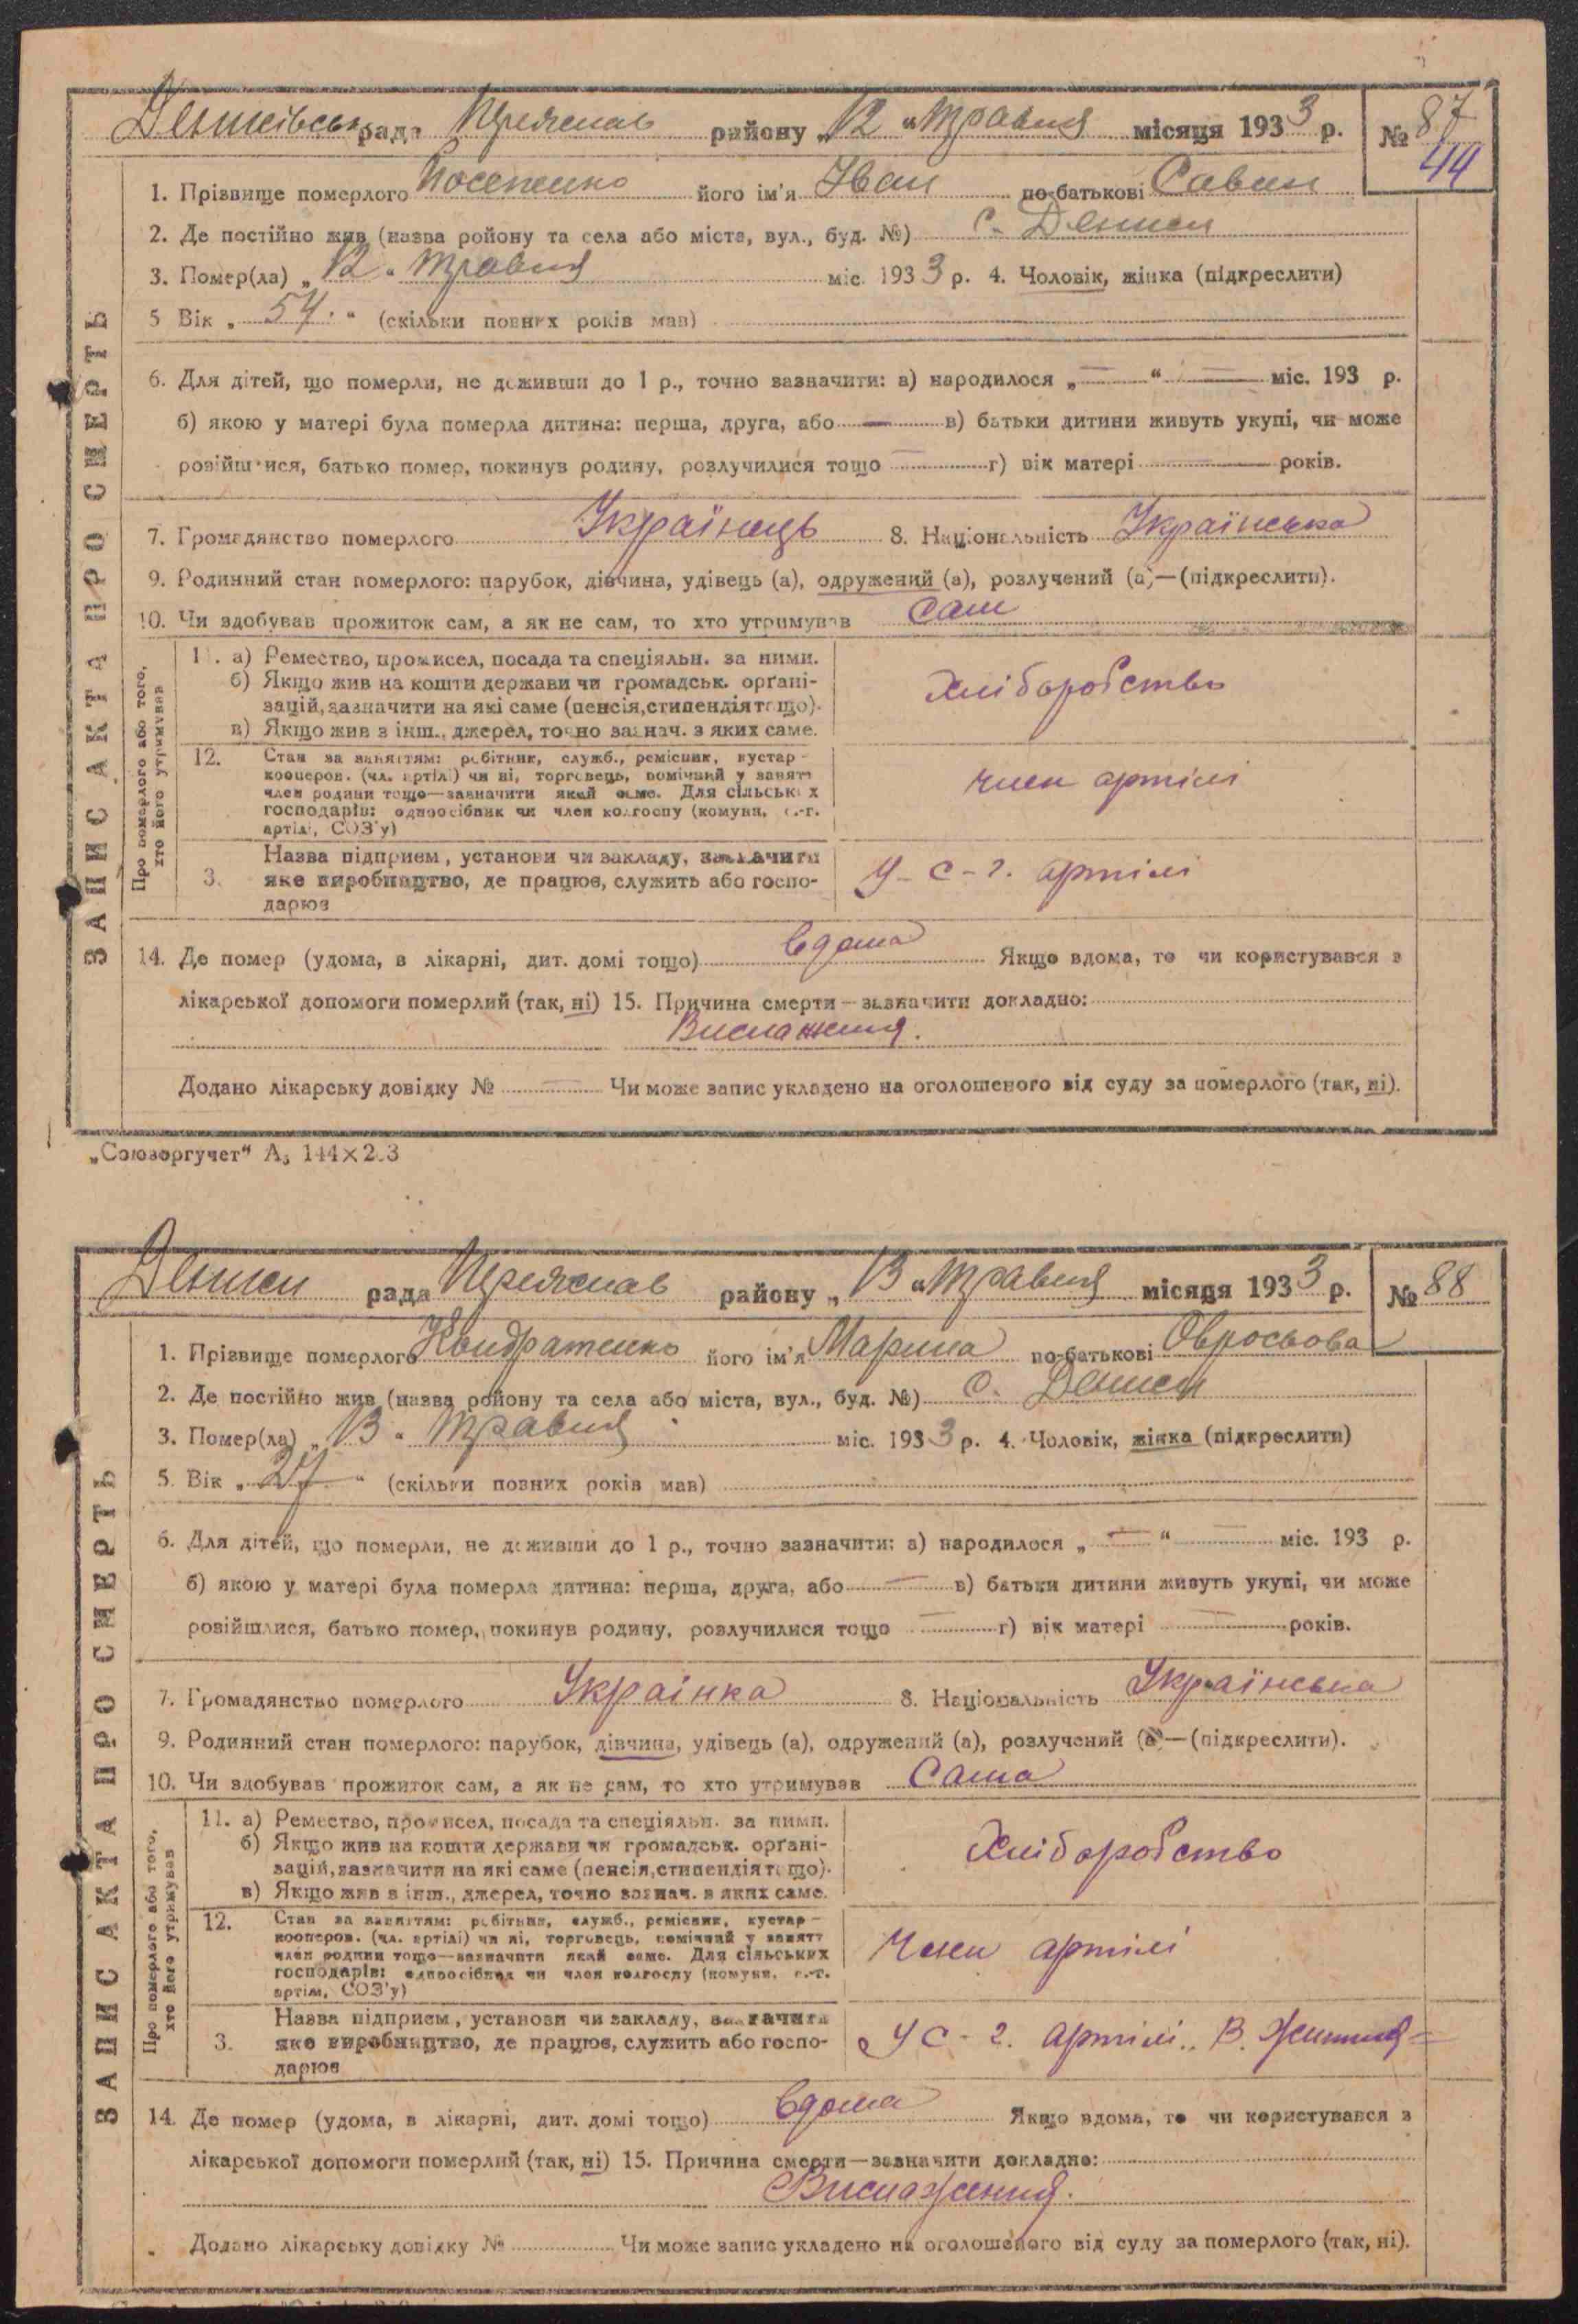 Денисівська рада Переяслав району „12" травня місяця 1933 р. № 87
44
1. Прізвище померлого його ім'я Іван по-батькові Савин
2. Де постійно жив (назва ройону та села або міста, вул., буд. №) с. Дениси
3. Помер(ла) „12" травня міс. 1933 р. 4. Чоловік, жінка (підкреслити)
5 Вік „54." (скільки повних років мав)
6. Для дітей, що померли, не доживши до 1 р., точно зазначити: а) народилося „—" — міс. 193 р.
б) якою у матері була померла дитина: перша, друга, або — в) батьки дитини живуть укупі, чи може
розійшлися, батько помер, покинув родину, розлучилися тощо — г) вік матері — років.
7. Громадянство померлого Українець 8. Національність Українська
9. Родинний стан померлого: парубок, дівчина, удівець (а), одружений (а), розлучений (а)—(підкреслити).
10. Чи здобував прожиток сам, а як не сам, то хто утримував Сам
11. а) Ремество, промисел, посада та спеціяльн. за ними.
б) Якщо жив на кошти держави чи громадськ. орґані-
зацій, зазначити на які саме (пенсія, стипендія тощо).
в) Якщо жив з інш., джерел, точно зазнач. з яких саме.
Хліборобство
12. Стан за заняттям: робітник, служб., ремісник, кустар-
кооперов. (чл. артілі) чи ні, торговець, помічний у занятт
член родини тощо—зазначити який саме. Для сільських
господарів: одноосібник чи член колгоспу (комуни, с.-г.
артілі, СОЗ'у)
член артілі
3. Назва підприєм, установи чи закладу, зазначити
яке виробництво, де працює, служить або госпо-
дарює
У с-г. артілі
14. Де помер (удома, в лікарні, дит. домі тощо) вдома Якщо вдома, то чи користувався з
лікарської допомоги померлий (так, ні) 15. Причина смерти—зазначити докладно:
Виснаження.
Додано лікарську довідку № — Чи може запис укладено на оголошеного від суду за померлого (так, ні).
ЗАПИС АКТА ПРО СМЕРТЬ
Про померлого або того,
хто його утримував
„Союзоргучет" А₅ 144×2.3
Дениси рада Переяслав району „13" травня місяця 1933 р. № 88
1. Прізвище померлого Кондратенко його ім'я Марина по-батькові
2. Де постійно жив (назва ройону та села або міста, вул., буд. №) с. Дениси
3. Помер(ла) „13" травня міс. 1933 р. 4. Чоловік, жінка (підкреслити)
5. Вік „27" (скільки повних років мав)
6. Для дітей, що померли, не доживши до 1 р., точно зазначити: а) народилося „—" — міс. 193 р.
б) якою у матері була померла дитина: перша, друга, або — в) батьки дитини живуть укупі, чи може
розійшлися, батько помер, покинув родину, розлучилися тощо — г) вік матері — років.
7. Громадянство померлого Українка 8. Національність Українська
9. Родинний стан померлого: парубок, дівчина, удівець (а), одружений (а), розлучений (а)—(підкреслити).
10. Чи здобував прожиток сам, а як не сам, то хто утримував Сама
11. а) Ремество, промисел, посада та спеціяльн. за ними.
б) Якщо жив на кошти держави чи громадськ. орґані-
зацій, зазначити на які саме (пенсія, стипендія тощо).
в) Якщо жив з інш., джерел, точно зазнач. з яких саме.
Хліборобство
12. Стан за заняттям: робітник, служб., ремісник, кустар-
кооперов. (чл. артілі) чи ні, торговець, помічний у занятт
член родини тощо—зазначити який саме. Для сільських
господарів: одноосібник чи член колгоспу (комуни, с.-г.
артілі, СОЗ'у)
Член артілі
3. Назва підприєм, установи чи закладу, зазначити
яке виробництво, де працює, служить або госпо-
дарює
У с-г. артілі.. В. Життя
14. Де помер (удома, в лікарні, дит. домі тощо) вдома Якщо вдома, то чи користувався з
лікарської допомоги померлий (так, ні) 15. Причина смерти—зазначити докладно:
Виснаження.
Додано лікарську довідку № Чи може запис укладено на оголошеного від суду за померлого (так, ні).
ЗАПИС АКТА ПРО СМЕРТЬ
Про померлого або того,
хто його утримував